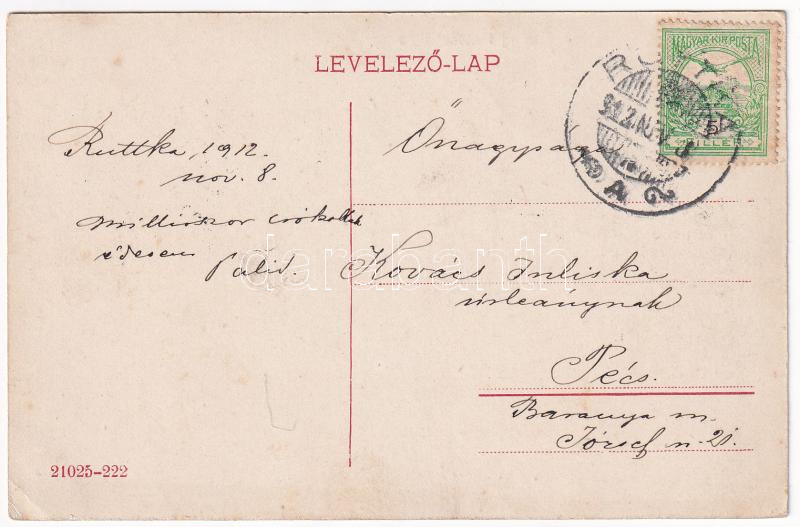 LEVELEZŐ-LAP
MAGYAR KIR. POSTA
5
FILLÉR
912 NOV 8
Ruttka, 1912.
nov. 8.
Milliószor csókollak
édesem
Palid.
Őnagysága
Kovács Juliska
úrleánynak
Pécs.
Baranya m.
József u. 21.
21025-222
darabanth